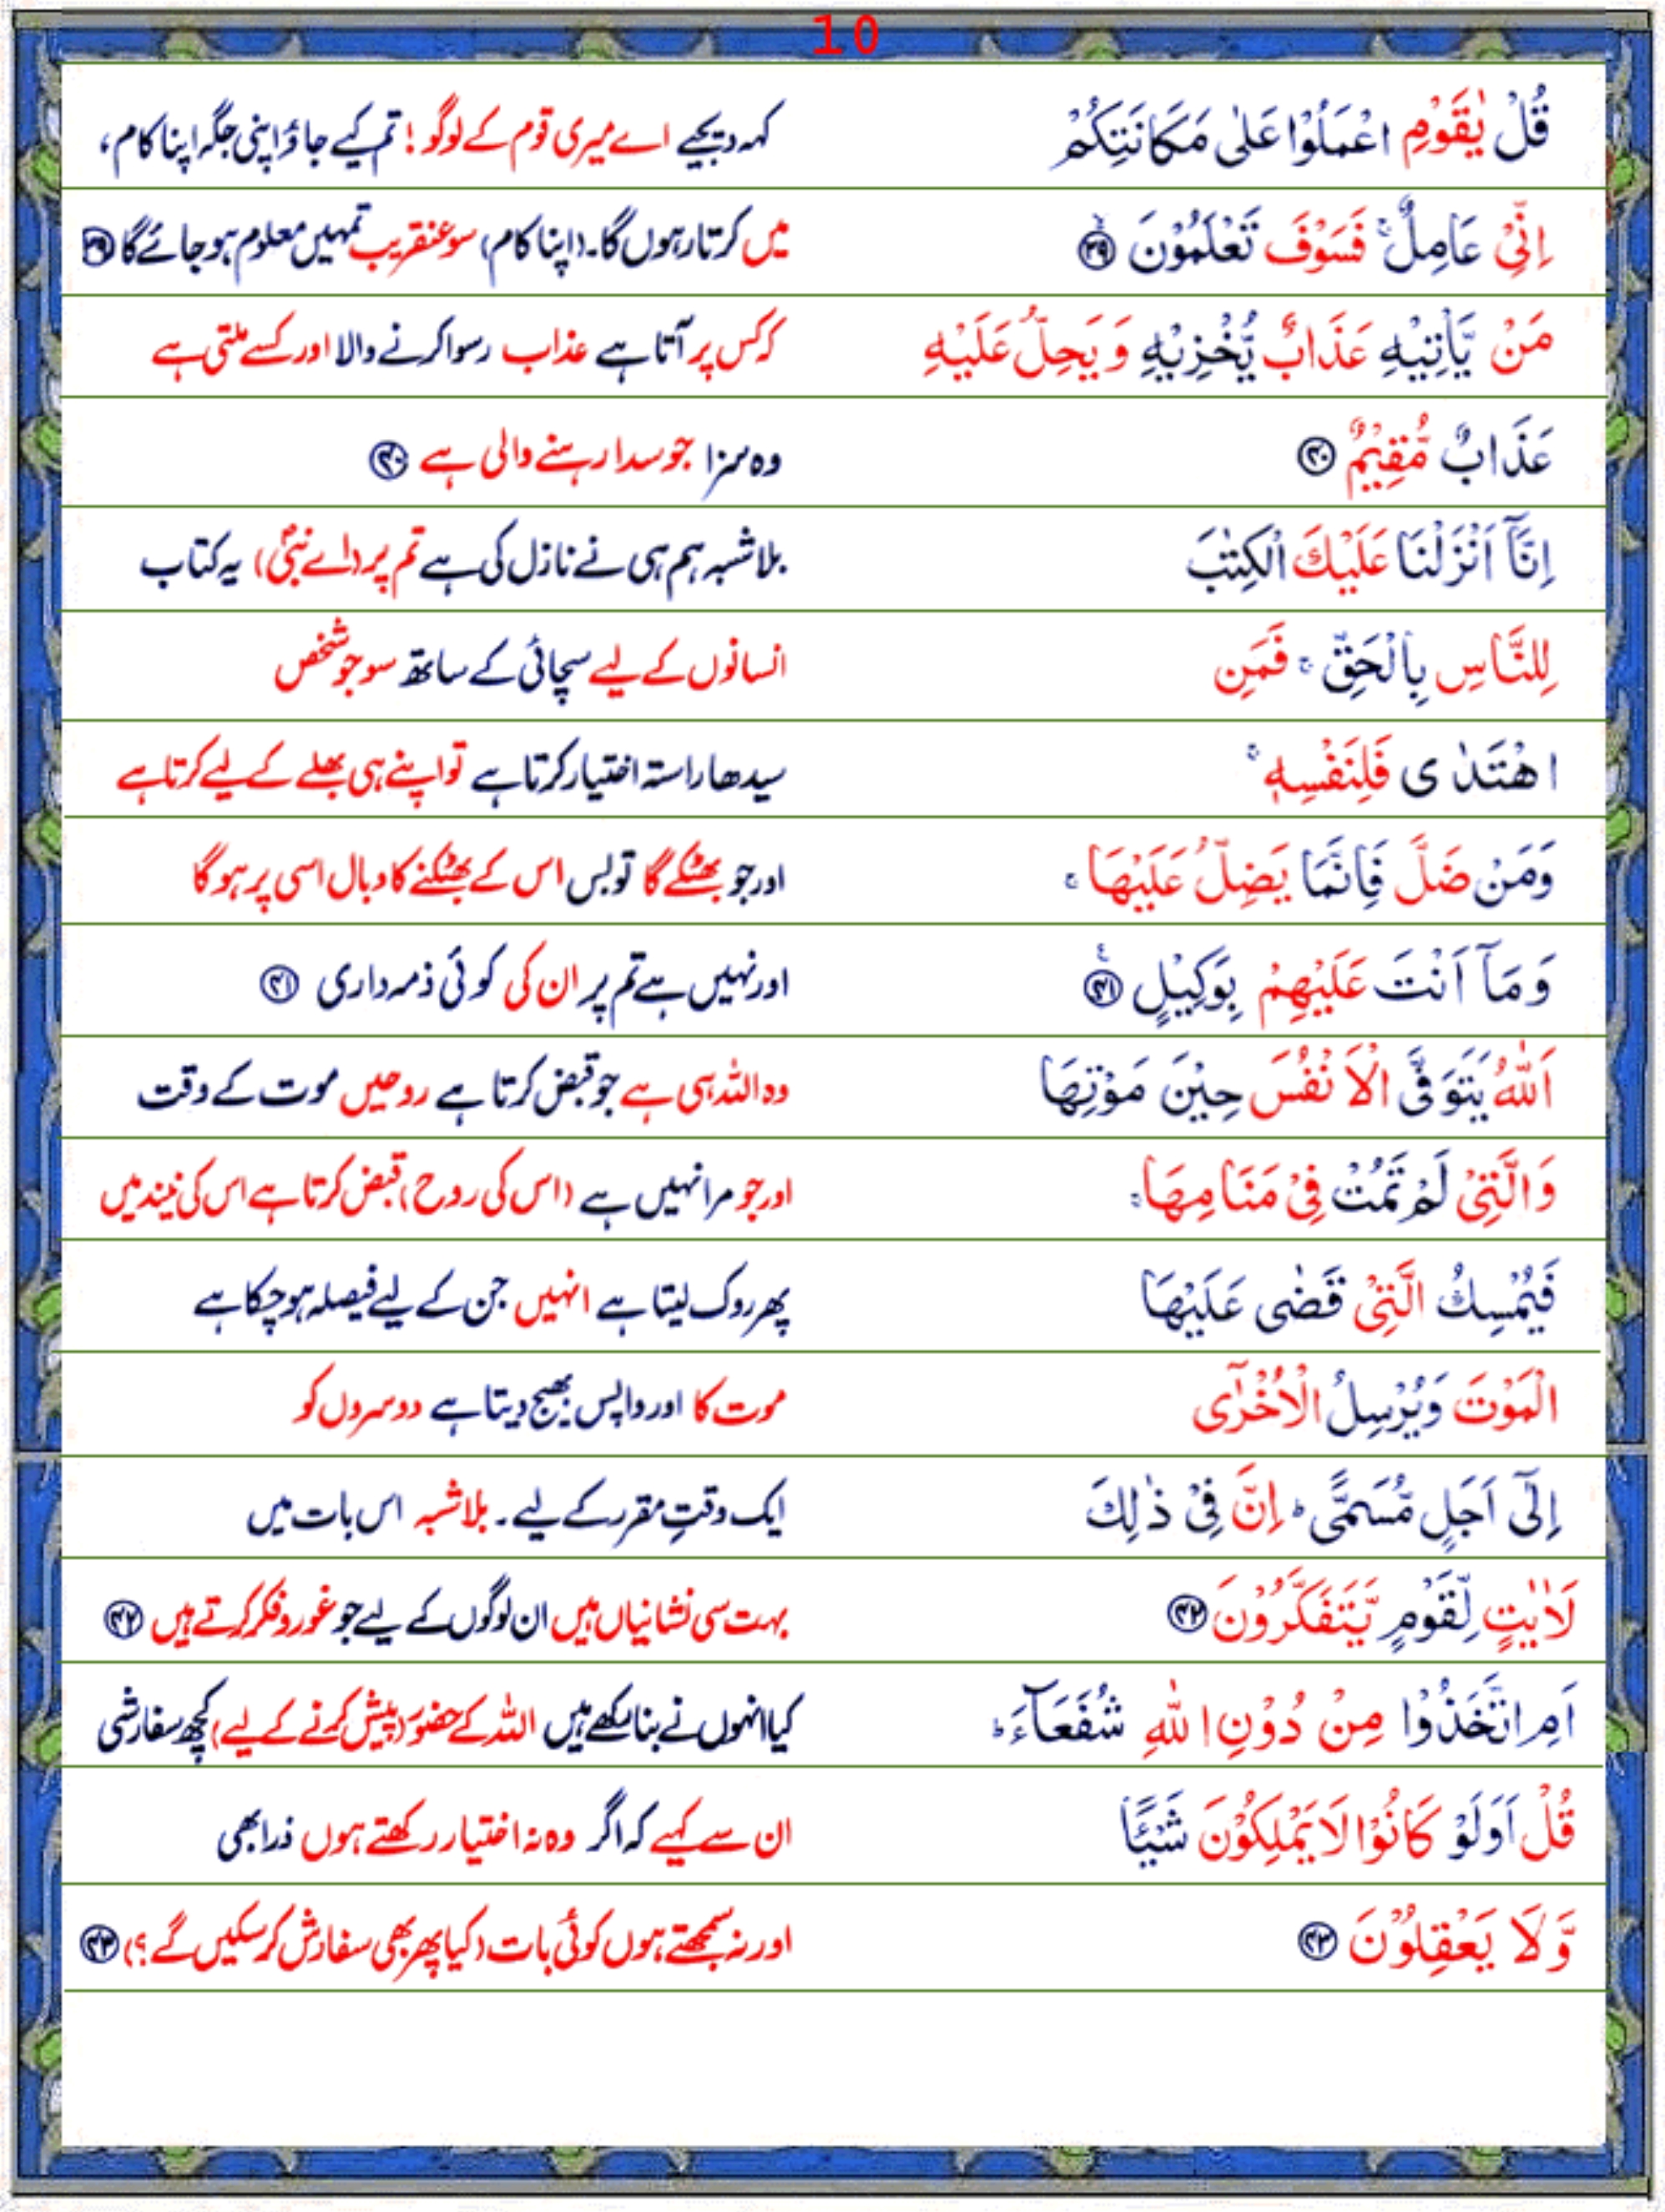 10
قُلْ یٰقَوْمِ اعْمَلُوْا عَلٰی مَكَانَتِكُمْ کہہ دیجیے اے میری قوم کے لوگو! تم کیے جاؤ اپنی جگہ اپنا کام،
اِنِّیْ عَامِلٌ ۚ فَسَوْفَ تَعْلَمُوْنَ ۙ﴿۳۹﴾ میں کرتا رہوں گا۔ (اپنا کام) سو عنقریب تمہیں معلوم ہوجائے گا ﴿۳۹﴾
مَنْ یَّاْتِیْهِ عَذَابٌ یُّخْزِیْهِ وَ یَحِلُّ عَلَیْهِ کہ کس پر آتا ہے عذاب رسوا کرنے والا اور کسے ملتی ہے
عَذَابٌ مُّقِیْمٌ ﴿۴۰﴾ وہ سزا جو سدا رہنے والی ہے ﴿۴۰﴾
اِنَّاۤ اَنْزَلْنَا عَلَیْكَ الْكِتٰبَ بلاشبہ ہم ہی نے نازل کی ہے تم پر (اے نبیؐ) یہ کتاب
لِلنَّاسِ بِالْحَقِّ ۚ فَمَنِ انسانوں کے لیے سچائی کے ساتھ سو جو شخص
اهْتَدٰی فَلِنَفْسِهٖ ۚ سیدھا راستہ اختیار کرتا ہے تو اپنے ہی بھلے کے لیے کرتا ہے
وَمَنْ ضَلَّ فَاِنَّمَا یَضِلُّ عَلَیْهَا ۚ اور جو بھٹکے گا تو بس اس کے بھٹکنے کا وبال اسی پر ہوگا
وَ مَاۤ اَنْتَ عَلَیْهِمْ بِوَكِیْلٍ ﴿۴۱﴾ اور نہیں ہے تم پر ان کی کوئی ذمہ داری ﴿۴۱﴾
اَللّٰهُ یَتَوَفَّی الْاَنْفُسَ حِیْنَ مَوْتِهَا وہ اللہ ہی ہے جو قبض کرتا ہے روحیں موت کے وقت
وَالَّتِیْ لَمْ تَمُتْ فِیْ مَنَامِهَا ۚ اور جو مرا نہیں ہے (اس کی روح) قبض کرتا ہے اس کی نیند میں
فَیُمْسِكُ الَّتِیْ قَضٰی عَلَیْهَا پھر روک لیتا ہے انہیں جن کے لیے فیصلہ ہوچکا ہے
الْمَوْتَ وَیُرْسِلُ الْاُخْرٰۤی موت کا اور واپس بھیج دیتا ہے دوسروں کو
اِلٰۤی اَجَلٍ مُّسَمًّی ؕ اِنَّ فِیْ ذٰلِكَ ایک وقتِ مقرر کے لیے۔ بلاشبہ اس بات میں
لَاٰیٰتٍ لِّقَوْمٍ یَّتَفَكَّرُوْنَ ﴿۴۲﴾ بہت سی نشانیاں ہیں ان لوگوں کے لیے جو غور و فکر کرتے ہیں ﴿۴۲﴾
اَمِ اتَّخَذُوْا مِنْ دُوْنِ اللّٰهِ شُفَعَآءَ ؕ کیا انہوں نے بنا رکھے ہیں اللہ کے حضور (پیش کرنے کے لیے) کچھ سفارشی
قُلْ اَوَلَوْ كَانُوْا لَا یَمْلِكُوْنَ شَیْـًٔا ان سے کہیے کہ اگر وہ نہ اختیار رکھتے ہوں ذرا بھی
وَّلَا یَعْقِلُوْنَ ﴿۴۳﴾ اور نہ سمجھتے ہوں کوئی بات (کیا پھر بھی سفارش کرسکیں گے؟) ﴿۴۳﴾